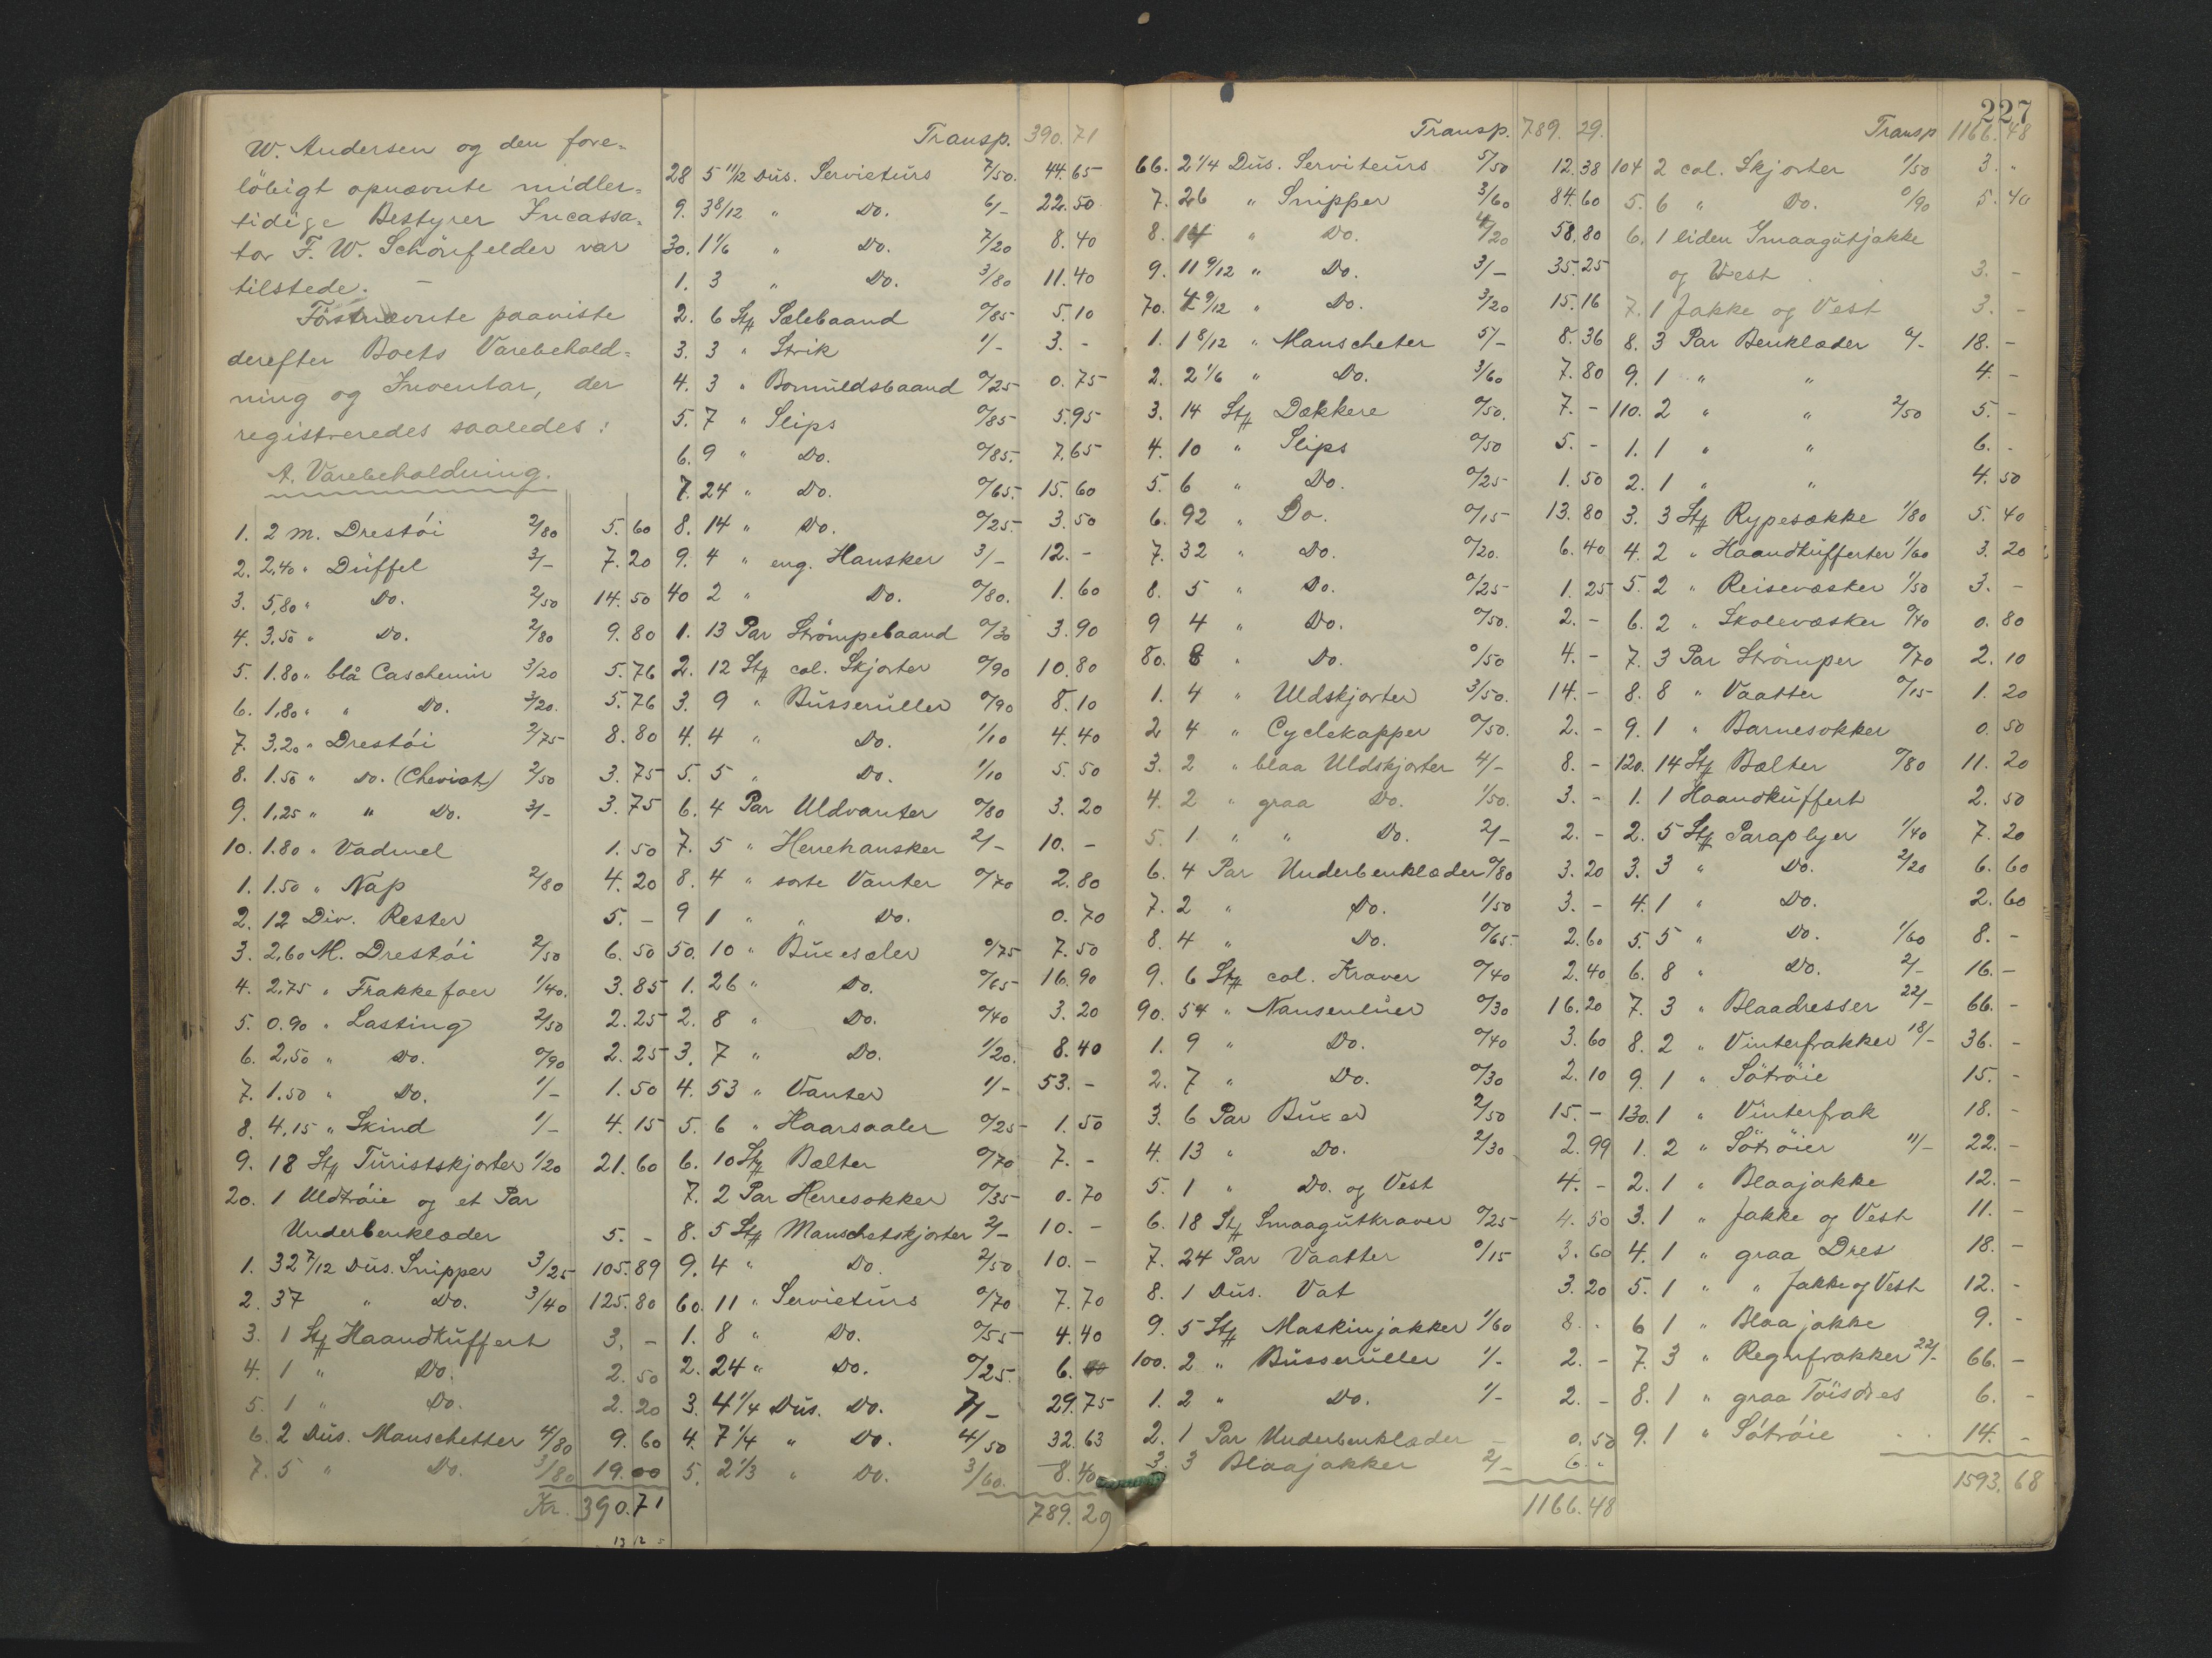 W. Andersen og den fore=
löbigt opnævnte midler=
tidige Bestyrer Incassa=
tor F. W. Schönfelder var
tilstede. —
Föstnævnte paaviste
derefter Boets Varebehold=
ning og Inventar, der
registreredes saaledes:
A. Varebeholdning.
1. 2 m. Drestöi 2/80 5. 60
2. 2,40 " Düffel 3/- 7. 20
3. 5,80 " Do. 2/50 14. 50
4. 3.50 " Do. 2/80 9. 80
5. 1.80 " blå Caschemir 3/20 5. 76
6. 1,80 " " Do. 3/20. 5. 76
7. 3.20 " Drestöi 2/75 8. 80
8. 1.50 " Do. (Cheviot) 2/50 3. 75
9. 1,25 " " Do. 3/- 3. 75
10. 1.80 " Vadmel 1. 50
1. 1.50 " Nap 2/80 4. 20
2. 12 Div. Rester 5. -
3. 2,60 M. Drestöi 2/50 6. 50
4. 2,75 " Frakkefoer 1/40. 3. 85
5. 0.90 " Lasting 2/50 2. 25
6. 2,50 " Do. 0/90 2. 25
7. 1.50 " Do. 1/- 1. 50
8. 4,15 " Skind 1/- 4. 15
9. 18 Stk Türistskjorter 1/20 21. 60
20. 1 Uldtröie og et Par
Underbenklæder 5. -
1. 32 7/12 Düs. Snipper 3/25 105. 89
2. 37 " Do. 3/40 125. 80
3. 1 Stk Haandküffert 3. -
4. 1 " Do. 2. 50
5. 1 " Do. 2. 20
6. 2 Düs. Manschetter 4/80 9. 60
7. 5 " Do. 3/80 19. 00
Kr. 390. 71
13 12 5
Transp. 390. 71
28 5 11/12 Düs. Servietürs 7/50. 44. 65
9. 3 8/12 " Do. 6/- 22. 50
30. 1 1/6 " Do. 7/20 8. 40
1. 3 " Do. 3/80 11. 40
2. 6 Stk Sælebaand 0/85 5. 10
3. 3 " Strik 1/- 3. -
4. 3 " Bomuldsbaand 0/25 0. 75
5. 7 " Slips 0/85 5. 95
6. 9 " Do. 0/85. 7. 65
7. 24 " Do. 0/65. 15. 60
8. 14 " Do. 0/25. 3. 50
9. 4 " eng. Hansker 3/- 12. -
40 2 " Do. 0/80. 1. 60
1. 13 Par Strömpebaand 0/30 3. 90
2. 12 Stk col. Skjorter 0/90 10. 80
3. 9 " Büsserüller 0/90 8. 10
4. 4 " Do. 1/10 4. 40
5. 5 " Do. 1/10 5. 50
6. 4 Par Uldvanter 0/80 3. 20
7. 5 " Herrehansker 2/- 10. -
8. 4 " sorte Vanter 0/70 2. 80
9 1 " " Do. 0. 70
50. 10 " Büxesæler 0/75 7. 50
1. 26 " Do. 0/65 16. 90
2. 8 " Do. 0/40 3. 20
3. 7 " Do. 1/20. 8. 40
4. 53 " Vanter 1/- 53. -
5. 6 " Haarsaaler 0/25 1. 50
6. 10 Stk Bælter 0/70 7. -
7. 2 Par Herresokker 0/35 0. 70
8. 5 Stk Manschetskjorter 2/- 10. -
9. 4 " Do. 2/50 10. -
60. 11 " Servietürs 0/70 7. 70
1. 8 " Do. 0/55 4. 40
2. 24 " Do. 0/25. 6.
3. 4 1/4 Düs. Do. 7/- 29. 75
4. 7 1/4 " Do. 4/50 32. 63
5. 2 1/3 " Do. 3/60. 8. 40
789. 29
227
Transp. 789. 29.
66. 2 1/4 Düs. Serviteürs 5/50 12. 38
7. 26 " Snipper 3/60 84. 60
8. 14 " Do. 4/20 58. 80
9. 11 9/12 " Do. 3/- 35. 25
70. 4 9/12 " Do. 3/20 15. 16
1. 1 8/12 " Manscheter 5/- 8. 36
2. 2 1/6 " Do. 3/60 7. 80
3. 14 Stk Dækkere 0/50. 7. -
4. 10 " Slips 0/50 5. -
5. 6 " Do. 0/25 1. 50
6. 92 " Do. 0/15 13. 80
7. 32 " Do. 0/20. 6. 40
8. 5 " Do. 0/25 1. 25
9 4 " Do. 0/50. 2. -
80. 8 " Do. 0/50 4. -
1. 4 " Uldskjorter 3/50. 14. -
2 4 " Cyclekapper 0/50. 2. -
3. 2 " blaa Uldskjorter 4/- 8. -
4. 2 " graa Do. 1/50. 3. -
5. 1 " " Do. 2/- 2. -
6. 4 Par Underbenklæder 0/80 3. 20
7. 2 " Do. 1/50 3. -
8. 4 " Do. 0/65. 2. 60
9. 6 Stk col. Kraver 0/40 2. 40
90. 54 " Nansenlüer 0/30 16. 20
1. 9 " Do. 0/40 3. 60
2. 7 " Do. 0/30 2. 10
3. 6 Par Büxer 2/50 15. -
4. 13 " Do. 2/30 2. 99
5. 1 " Do. og Vest 4. -
6. 18 Stk Smaagütkraver 0/25 4. 50
7. 24 Par Vaatter 0/15 3. 60
8. 1 Düs. Vat 3. 20
9. 5 Stk Maskinjakker 1/60 8. -
100. 2 " Büsserüller 1/- 2. -
1. 2 " Do. 1/- 2. -
2. 1 Par Underbenklæder - 0. 50
3. 3 Blaajakker 2/- 6. "
1166. 48
Transp 1166. 48
104 2 col. Skjorter 1/50 3. "
5. 6 " Do. 0/90 5. 40
6. 1 liden Smaagütjakke
og Vest 3. -
7. 1 Jakke og Vest 3. -
8. 3 Par Benklæder 6/- 18. -
9. 1 " " 4. -
110. 2 " " 2/50 5. -
1. 1 " " 6. -
2. 1 " " 4. 50
3. 3 Stk Rypesække 1/80 5. 40
4. 2 " Haandküfferter 1/60 3. 20
5. 2 " Reisevæsker 1/50 3. -
6. 2 " Skolevæsker 0/40 0. 80
7. 3 Par Strömper 0/70 2. 10
8. 8 " Vaatter 0/15 1. 20
9. 1 " Barnesokker 0. 50
120. 14 Stk Bælter 0/80 11. 20
1. 1 Haandküffert 2. 50
2. 5 Stk Paraplyer 1/40 7. 20
3. 3 " Do. 2/20 6. 60
4. 1 " Do. 2. 60
5. 5 " Do. 1/60 8. -
6. 8 " Do. 2/- 16. -
7. 3 " Blaadresser 22/- 66. -
8. 2 " Vinterfrakker 18/- 36. -
9. 1 " Sötröie 15. -
130. 1 " Vinterfrak 18. -
1. 2 " Sötröier 11/- 22. -
2. 1 " Blaajakke 12. -
3. 1 " Jakke og Vest 11. -
4. 1 " graa Dres 18. -
5. 1 " " Jakke og Vest 12. -
6 1 " Blaajakke 9. -
7. 3 " Regnfrakker 22/- 66. -
8. 1 " graa Töisdres 6. -
9. 1 " Sötröie 14. -
1593. 68